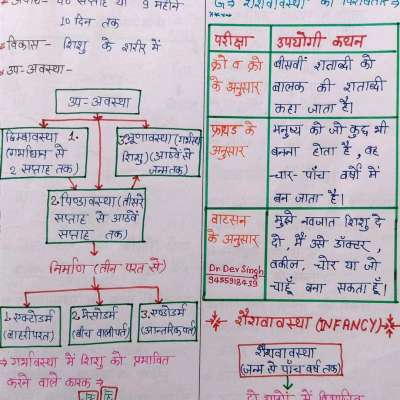 40 सप्ताह या 9 महीने
10 दिन तक
*विकास - शिशु के शरीर में
*उप-अवस्था-
उप-अवस्था
डिम्बावस्था 1.
(गर्भाधान से
2 सप्ताह तक)
3.भ्रूणावस्था(गर्भस्थ
शिशु)(आठवें से
जन्मतक)
2.पिण्डावस्था(तीसरे
सप्ताह से आठवें
सप्ताह तक)
निर्माण (तीन परत से)
1.एक्टोडर्म
(बाहरीपरत)
2.मैसोडर्म
(बीच वालीपर्त)
3.एण्डोडर्म
(आन्तरिकपर्त)
→ गर्भावस्था में शिशु को प्रभावित
करने वाले कारक →
शैशवावस्था की विशेषताएं
परीक्षा
उपयोगी कथन
क्रो व क्रो
के अनुसार
बीसवीं शताब्दी को
बालक की शताब्दी
कहा जाता है।
फ्रायड के
अनुसार
मनुष्य को जो कुछ भी
बनना होता है, वह
चार-पाँच वर्षों में
बन जाता है।
वाटसन
के अनुसार
Dr Dev Singh
मुझे नवजात शिशु दे
दो, मैं उसे डॉक्टर,
वकील, चोर या जो
चाहूँ बना सकता हूँ।
शैशवावस्था (INFANCY)
शैशवावस्था
(जन्म से पाँच वर्ष तक)
दो भागों में विभाजित